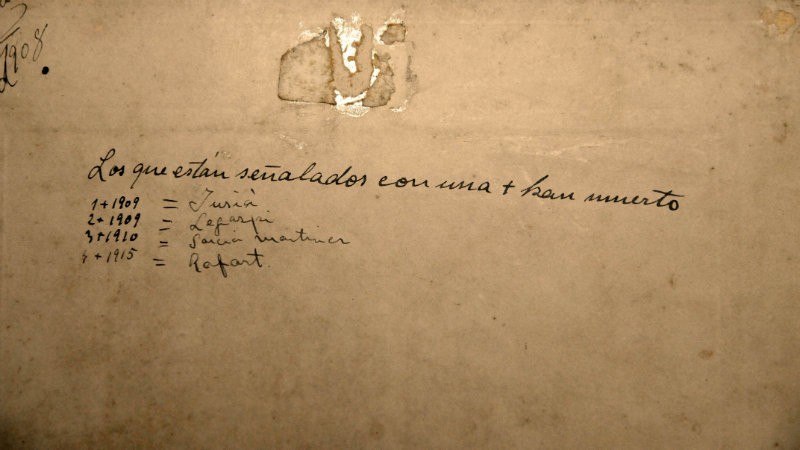 1908
Los que están señalados con una + han muerto
1 + 1909 =
2 + 1909 = Legazpi
3 + 1910 = Garcia Martinez
4 + 1915 = Rafart.